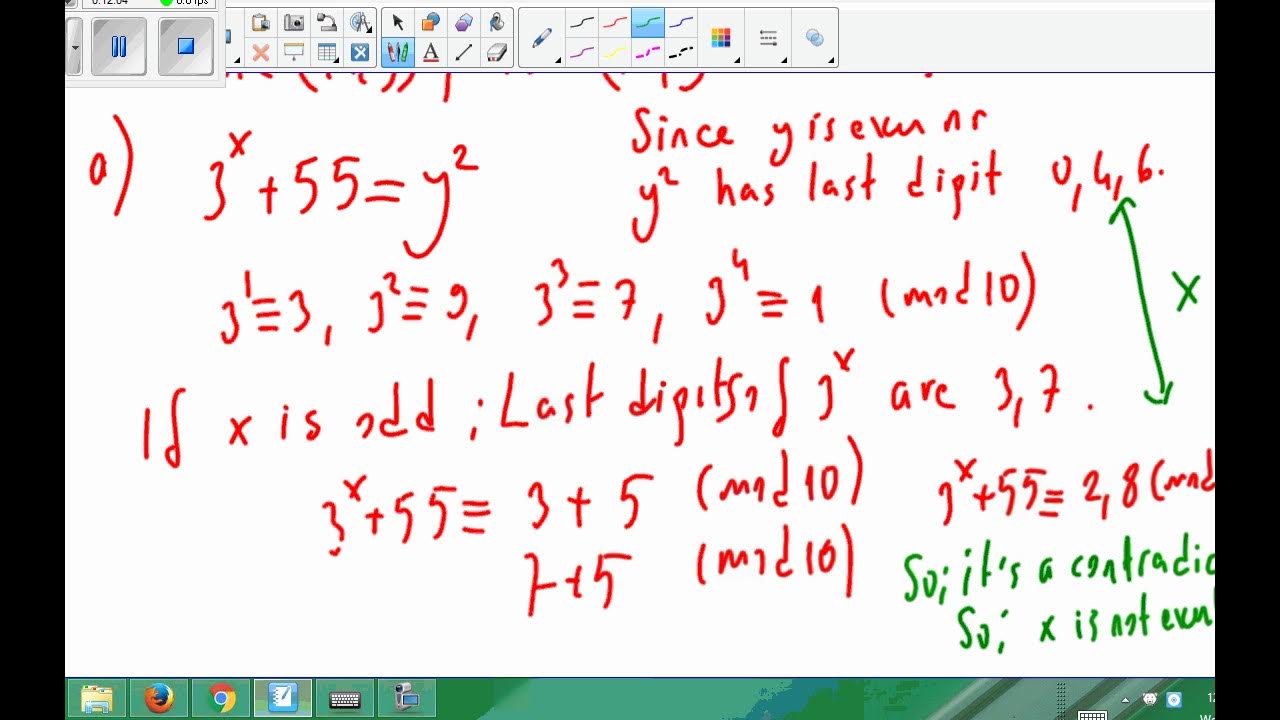 0:12:04
a) 3^x + 55 = y^2
Since y is even nr
y^2 has last digit 0, 4, 6.
3^1 ≡ 3, 3^2 ≡ 9, 3^3 ≡ 7, 3^4 ≡ 1 (mod 10)
X
If x is odd ; Last digits of 3^x are 3, 7 .
3^x + 55 ≡ 3 + 5 (mod 10)
7 + 5 (mod 10)
3^x + 55 ≡ 2, 8 (mod
So; it's a contradic
So; x is not even